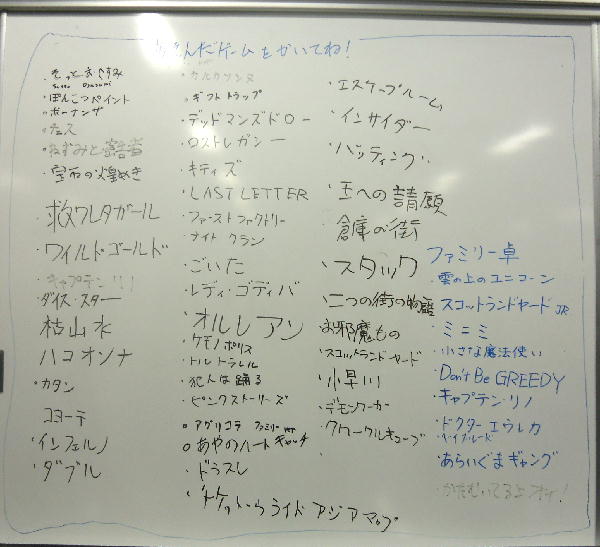 あそんだゲームをかいてね!
・そっとおやすみ
・ぽんこつペイント
・ボーナンザ
・チェス
・ねずみと密告者
・宝石の煌めき
・救ワレタガール
・ワイルドゴールド
・キャプテンリノ
・ダイス・スター
・枯山水
・ハコオンナ
・カタン
コヨーテ
・インフェルノ
・ダブル
・カルカソンヌ
・ギフトトラップ
・デッドマンズドロー
・ロストレガシー
・キティズ
・LAST LETTER
・ファーストファクトリー
・ナイトクラン
・ごいた
・レディ・ゴディバ
・オルレアン
・ケモノポリス
・トルトラレル
・犯人は踊る
・ピンクストーリーズ
・アグリコラ ファミリー
・あやのハートキャッチ
・ドラスレ
・チケットトゥライドアジアマップ
・エスケープルーム
・インサイダー
・バッティング
・王への請願
・倉庫の街
・スタック
・二つの街の物語
お邪魔もの
・スコットランドヤード
・小早川
・デモンワーカー
・クワークルキューブ
ファミリー卓
・雲の上のユニコーン
・スコットランドヤードJR
・ミニミ
・小さな魔法使い
・Don't Be GREEDY
・キャプテン・リノ
・ドクターエウレカ
・ベイブレード
・あらいぐまギャング
・かたむいてるよオイ!